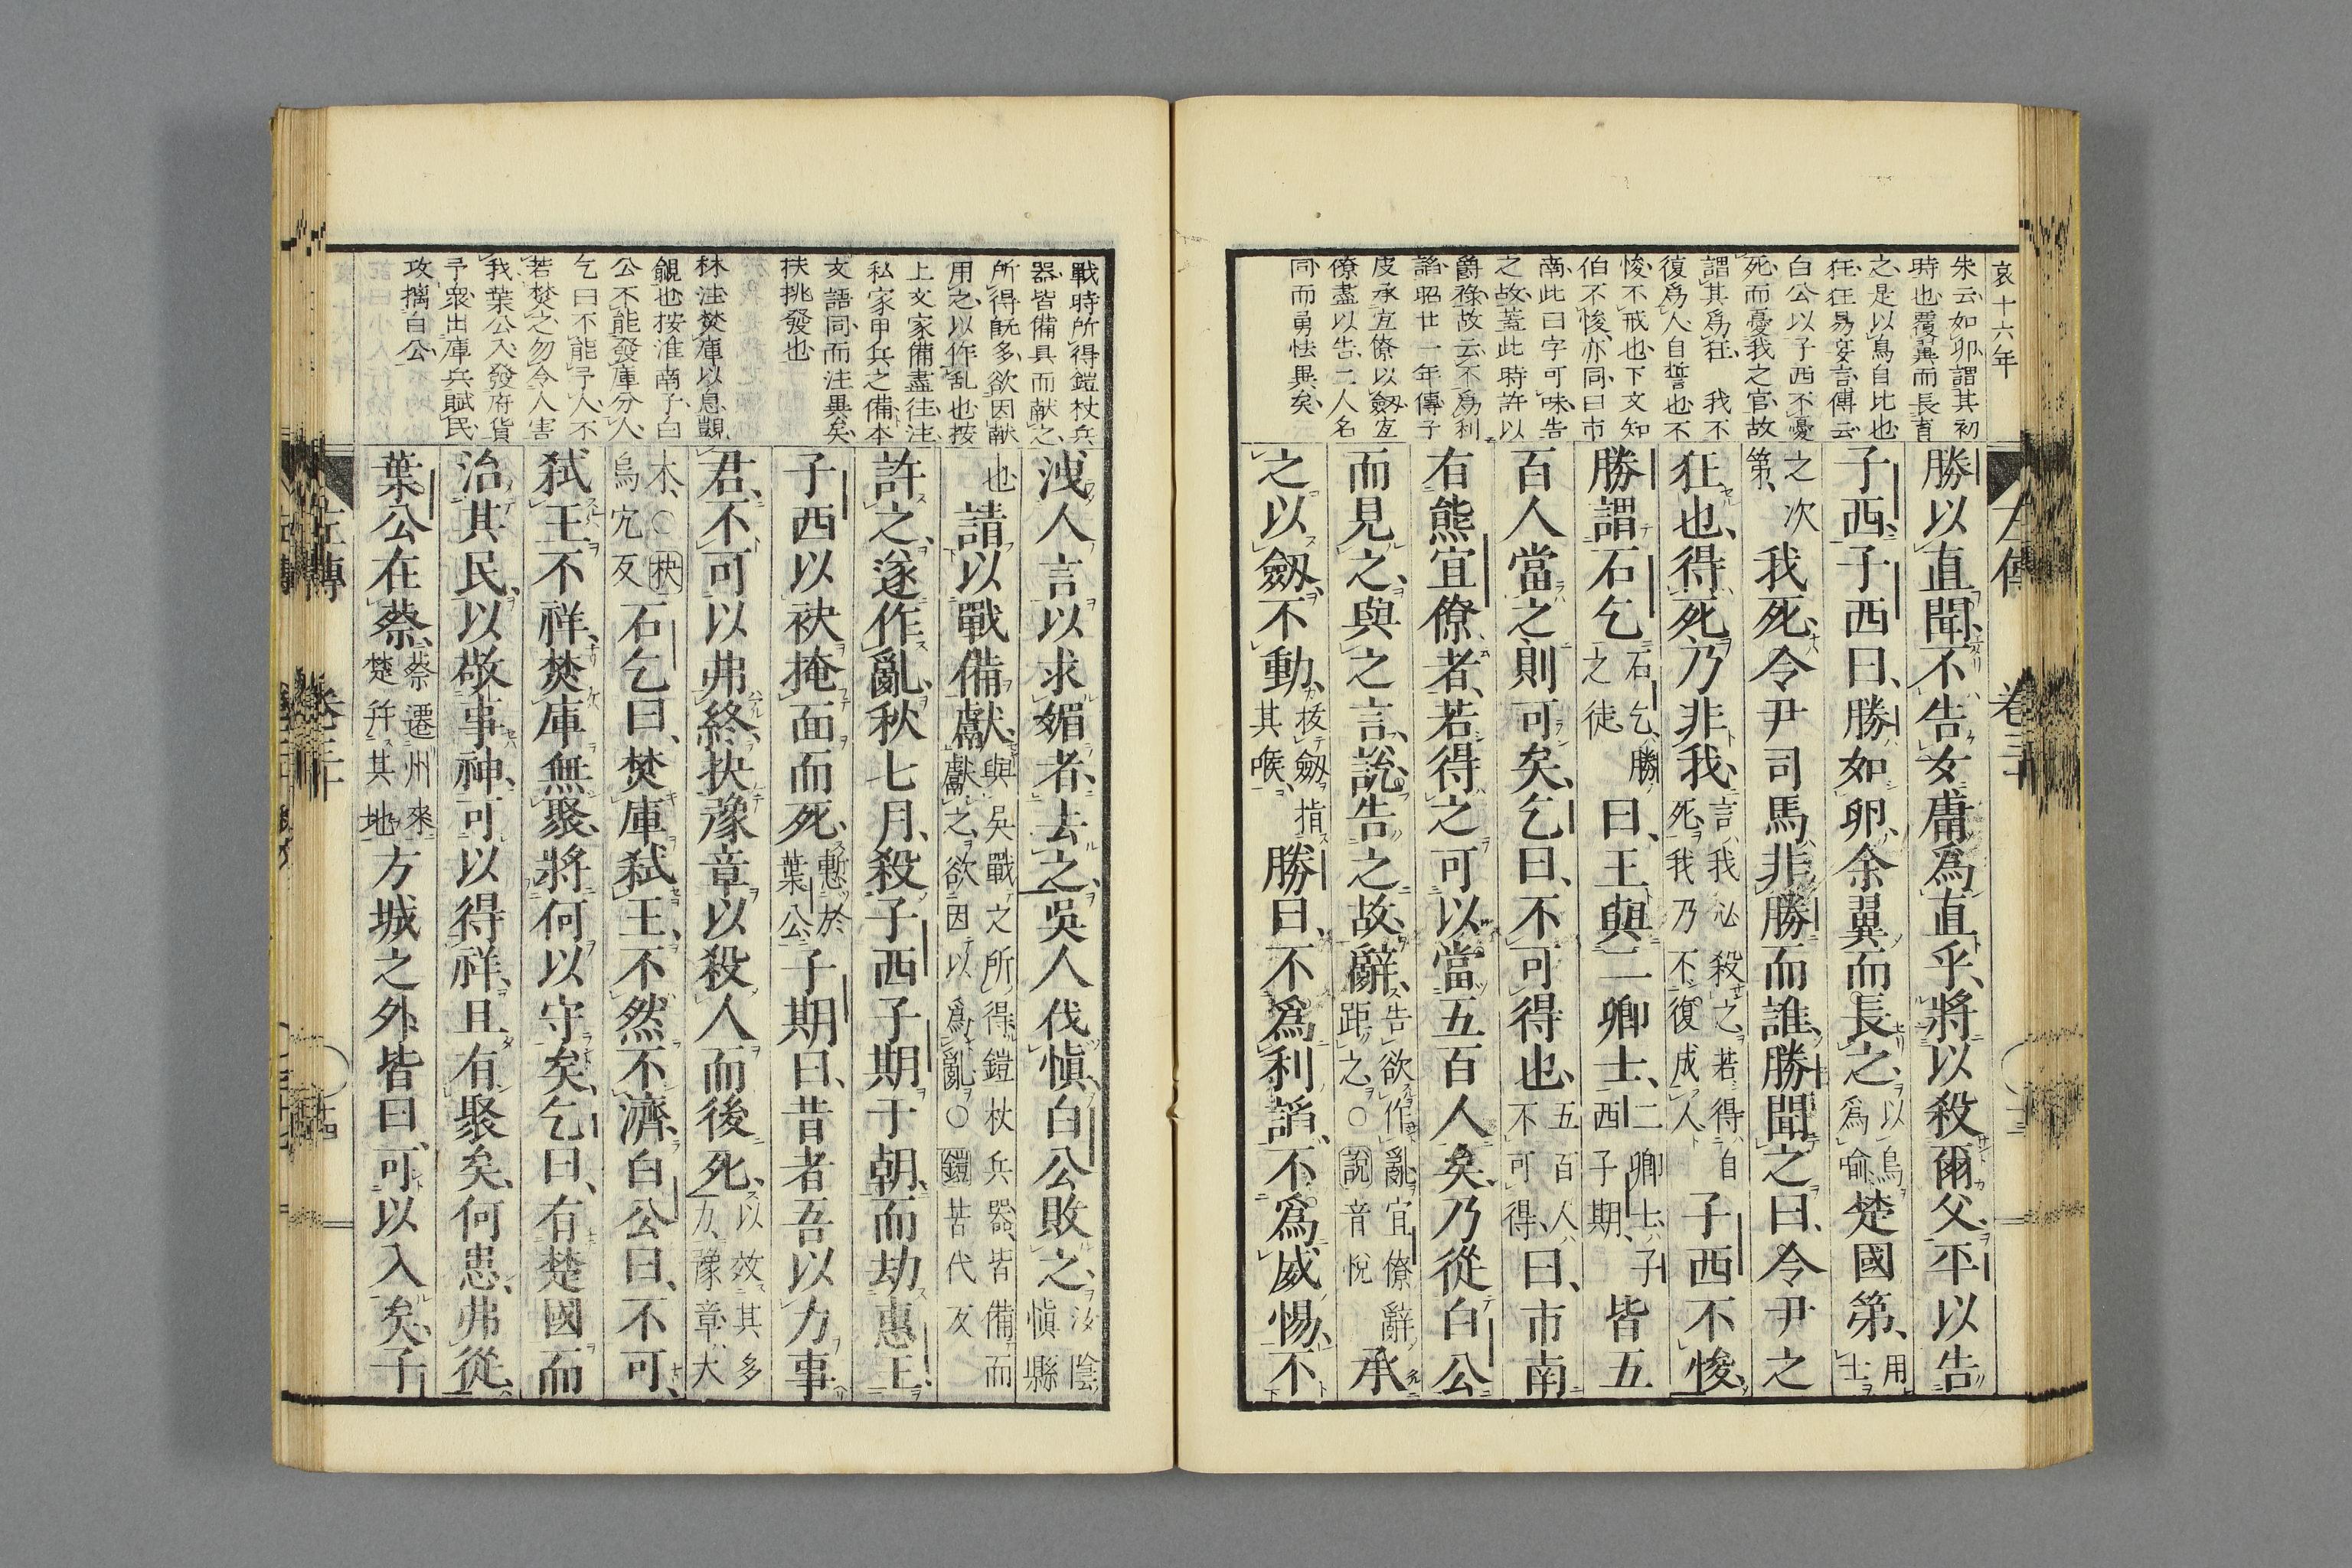 哀十六年
朱云如卵謂其初
時也覆翼而長育
之是以鳥自比也
狂狂易妄言傳云
白公以子西不憂
死而憂我之官故
謂其爲狂 我不
復爲人自誓也不
悛不戒也下文知
伯不悛亦同曰市
南此曰字可味告
之故蓋此時許以
爵祿故云不爲利
諂昭廿一年傳子
皮承宜僚以劔宜
僚盡以告二人名
同而勇怯異矣
左傳 卷三十
勝以直聞、不告女庸爲直乎、將以殺爾父、平以告
子西、子西曰、勝如卵、余翼而長之、以鳥爲喻、楚國第、用士
之次第、我死、令尹司馬、非勝而誰、勝聞之曰、令尹之
狂也、得死乃非我、言我必殺之、若得自死我乃不復成人 子西不悛、
勝謂石乞、石乞、勝之徒 曰、王與二卿士、二卿士、子西子期、皆五
百人當之則可矣、乞曰、不可得也、五百人不可得、曰、市南
有熊宜僚者、若得之可以當五百人矣、乃從白公
而見之、與之言、説、告之故、辭、告欲作亂宜僚辭距之、○説音悅 承
之以劔、不動、拔劔指其喉、勝曰、不爲利諂、不爲威惕、不
戰時所得鎧杖兵
器皆備具而献之
所得旣多欲因献
用之以作乱也按
上文家備盡往注
私家甲兵之備本
文語同而注異矣
扶挑發也
林注焚庫以息覬
覦也按淮南子白
公不能發庫分人
乞曰不能予人不
若焚之勿令人害
我葉公入發府貨
予衆出庫兵賦民
攻擒白公
洩人言以求媚者、去之、吳人伐愼、白公敗之、汝陰愼縣
也、請以戰備獻、與吳戰之所得鎧杖兵器、皆備而獻之、欲因以爲亂、○鎧苦代反
許之、遂作亂、秋七月、殺子西子期于朝、而劫惠王、
子西以袂掩面而死、慙於葉公、子期曰、昔者吾以力事
君、不可以弗終、抉豫章以殺人而後死、以效其多力、豫章、大
木、○抉烏宂反 石乞曰、焚庫弑王、不然不濟、白公曰、不可、
弑王不祥、焚庫無聚、將何以守矣、乞曰、有楚國而
治其民、以敬事神、可以得祥、且有聚矣、何患、弗從、
葉公在蔡、蔡遷州來楚幷其地 方城之外皆曰、可以入矣、子
左傳 卷三十